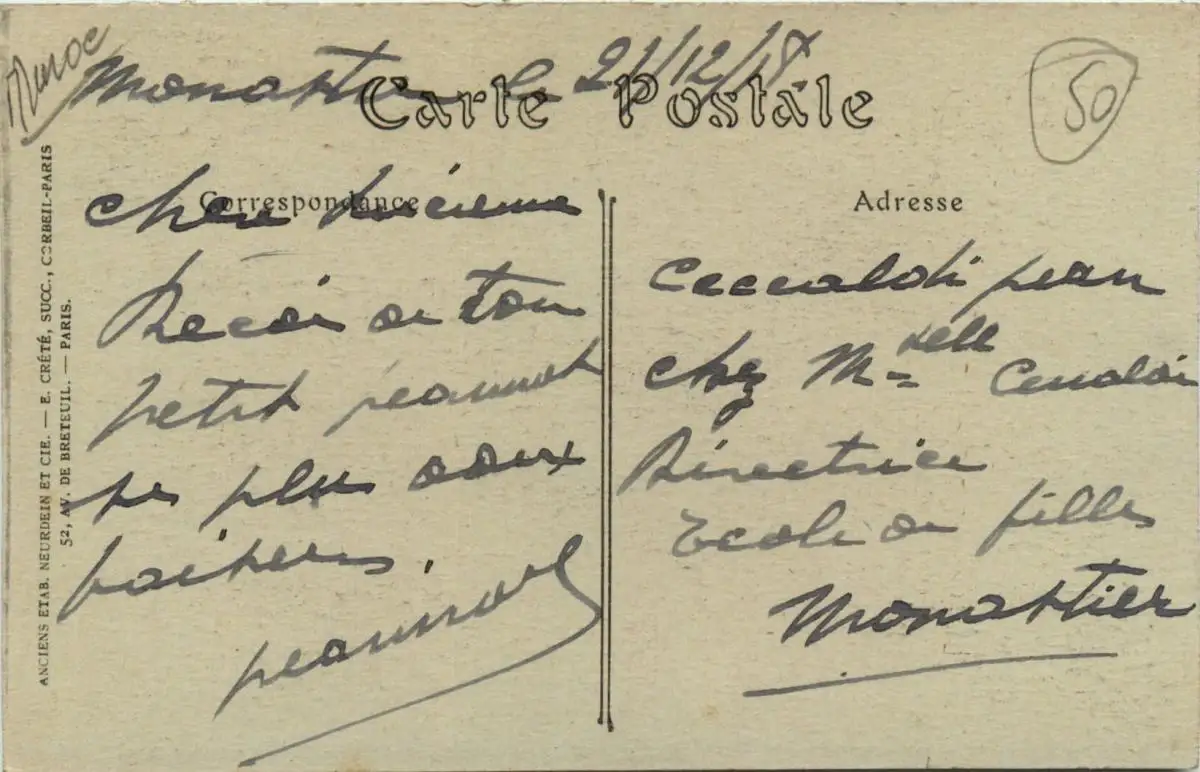 Maroc
Monastier le 21/12/18
Carte Postale
50
Correspondance
Adresse
Chere
Recoi de ton
petit jeannot
ses plus doux
baisers.
jeannot
Ceccaldi jean
chez Melle
Directrice
Ecole de filles
Monastier
ANCIENS ETAB. NEURDEIN ET CIE. — E. CRÉTÉ, SUCC., CORBEIL-PARIS
52, AV. DE BRETEUIL. — PARIS.